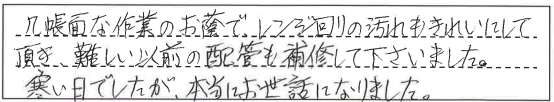 几帳面な作業のお蔭で、レンジ回りの汚れもきれいにして
頂き、難しい以前の配管も補修して下さいました。
寒い日でしたが、本当にお世話になりました。